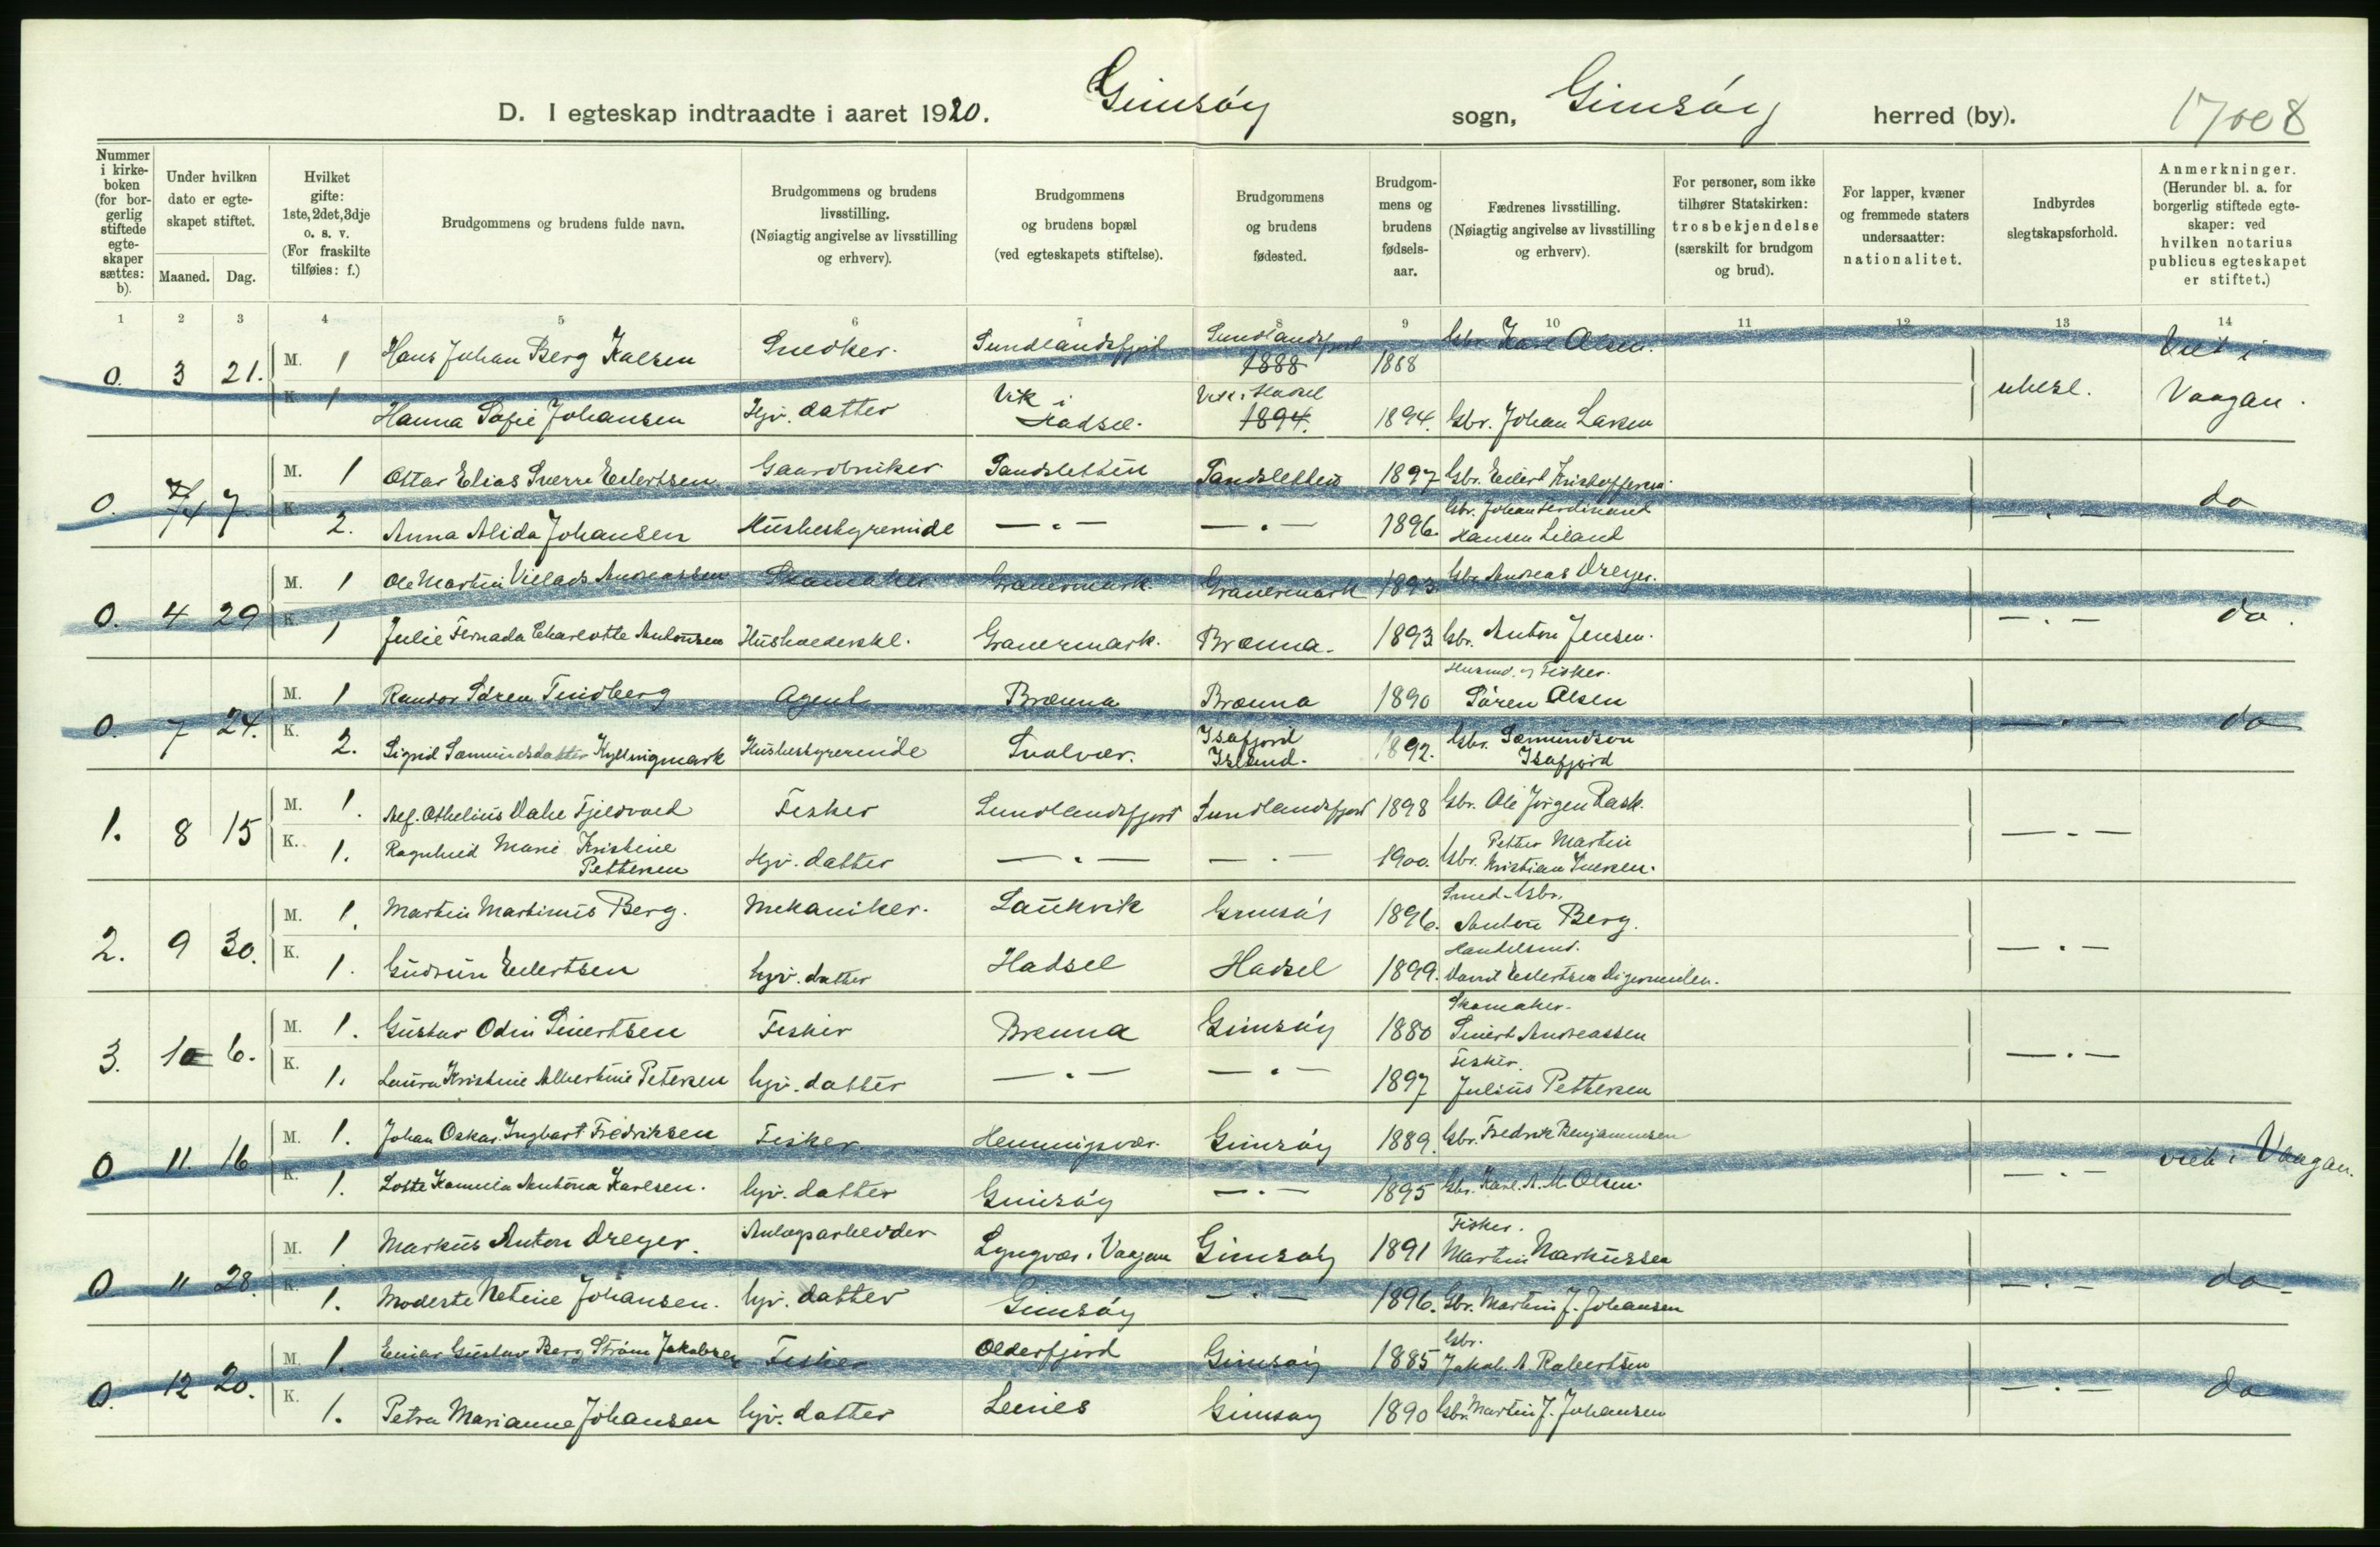 D. I egteskap indtraadte i aaret 1920. Gimsöy sogn, Gimsöy herred (by). 17008
Nummer i kirkeboken (for borgerlig stiftede egteskaper sættes: b).
Under hvilken dato er egteskapet stiftet.
Maaned. Dag.
Hvilket gifte: 1ste, 2det, 3dje o. s. v. (For fraskilte tilføies: f.)
Brudgommens og brudens fulde navn.
Brudgommens og brudens livsstilling. (Nøiagtig angivelse av livsstilling og erhverv).
Brudgommens og brudens bopæl (ved egteskapets stiftelse).
Brudgommens og brudens fødested.
Brudgommens og brudens fødselsaar.
Fædrenes livsstilling. (Nøiagtig angivelse av livsstilling og erhverv).
For personer, som ikke tilhører Statskirken: trosbekjendelse (særskilt for brudgom og brud).
For lapper, kvæner og fremmede staters undersaatter: nationalitet.
Indbyrdes slegtskapsforhold.
Anmerkninger. (Herunder bl. a. for borgerlig stiftede egteskaper: ved hvilken notarius publicus egteskapet er stiftet.)
1 2 3 4 5 6 7 8 9 10 11 12 13 14
0. 3 21. M. 1 Hans Johan Berg Kalsen Snedker. Sundlandsfjord Sundlandsfjord 1888 1888 Gbr. Karl Olsen. Viet i
K. 1 Hanna Sofie Johansen Hjv. datter Vik i Hadsel. Vik i Hadsel 1894. 1894. Gbr. Johan Larsen ubesl. Vaagan.
0. 4 7 M. 1 Ottar Elias Sverre Eilertsen Gaardbruker Sandsletten Sandsletten 1897 Gbr. Eilert Kristoffersen.
K. 2. Anna Alida Johansen Husbestyrerinde — . — — . — 1896. Gbr. Johan Ferdinand Hansen Liland — . — do
0. 4 29 M. 1 Ole Martin Villads Andreassen Skomaker Granermark. Granermark 1893 Gbr. Andreas Dreyer.
K. 1 Julie Fernada Charlotte Antonsen Husholderske. Granermark. Brenna. 1893 Gbr. Anton Jensen. — . — do.
0. 7 24. M. 1 Randor Sören Tindberg Agent Brenna Brenna 1890 Husmd. og Fisker. Sören Olsen
K. 2. Sigrid Sæmundsdatter Kyllingmark Husbestyrerinde Svolvær. Isafjord Island. 1892. Gbr. Sæmundson Isafjord — . — do
1. 8 15 M. 1. Alf. Othelius Dahe Fjeldvoed Fisker Sundlandsfjord Sundlandsfjord 1898 Gbr. Ole Jörgen Rask.
K. 1. Ragnhild Marie Kristine Pettersen Hjv. datter — . — — . — 1900. Gbr. Petter Martin Kristian Iversen. — . —
2. 9 30. M. 1. Martin Martinus Berg. Mekaniker. Laukvik Gimsöy 1896. Smed. Gbr. Anton Berg.
K. 1. Gudrun Eilertsen hjv. datter Hadsel Hadsel 1899. Handelsmd. David Eilertsen Digermulen. — . —
3. 10 6. M. 1. Gustav Odin Sivertsen Fisker Brenna Gimsöy 1880 Skomaker. Sivert Andreassen
K. 1. Laura Kristine Albertine Petersen hjv. datter — . — — . — 1897 Fisker. Julius Pettersen — . —
0. 11. 16 M. 1. Johan Oskar Ingbart Fredriksen Fisker Henningsvær. Gimsöy 1889. Gbr. Fredrik Benjaminsen
K. 1. Lotte Kamila Antona Karlsen. hjv. datter Gimsöy — . — 1895 Gbr. Karl. A. M. Olsen. — . — viet i Vaagan.
0. 11 28. M. 1 Markus Anton Dreyer. Anlægsarbeider Lyngvær i Vaagan Gimsöy 1891 Fisker. Martin Markussen
K. 1. Modeste Netine Johansen. hjv. datter Gimsöy — . — 1896. Gbr. Martin J. Johansen — . — do.
0. 12 20. M. 1. Einar Gustav Berg Ström Jakobsen Fisker Olderfjord Gimsöy 1885 Gbr. Jakob. A Robertsen
K. 1. Petra Marianne Johansen hjv. datter Leines Gimsöy 1890 Gbr. Martin J. Johansen — . — do